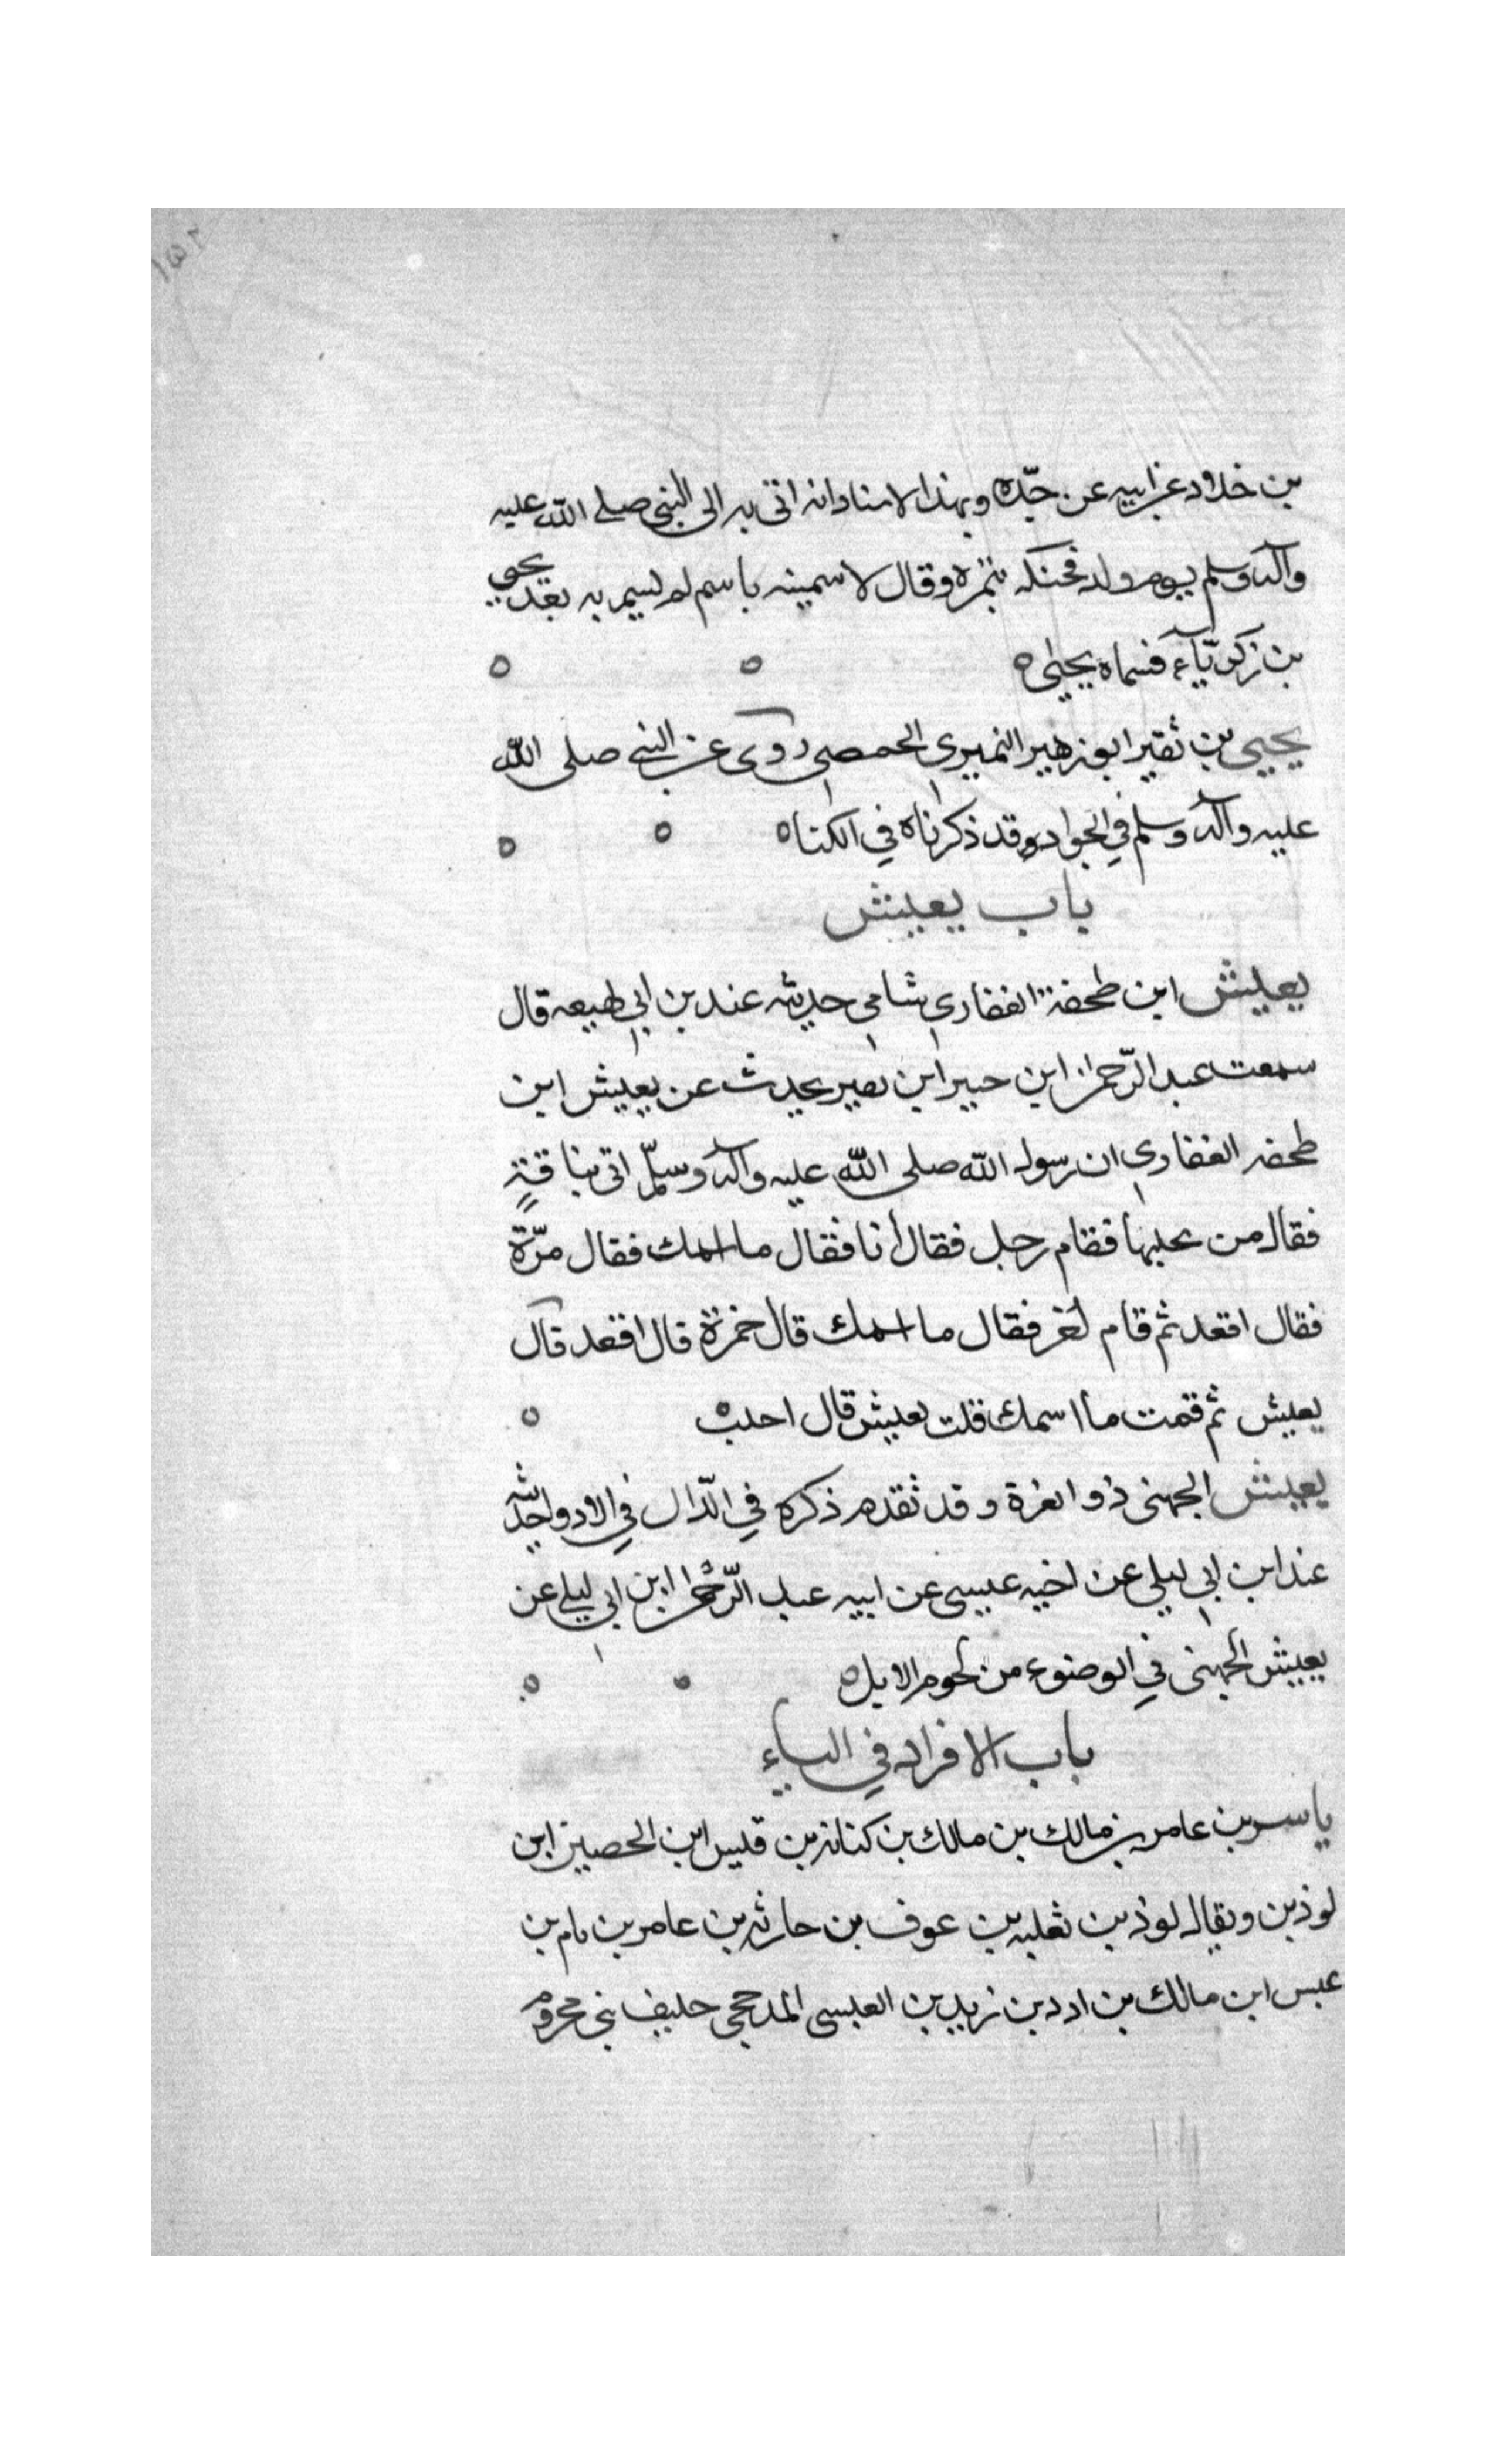 ١٥٢
بن خلاد عن ابيه عن جدّه وبهذا الاسناد انه اتى به الى النبي صلى الله عليه
وآله وسلم يوم ولد فحنكه بتمرة وقال لاسمينه باسم لم يسم به بعد يحيى
بن زكريّاء فسماه يحيى ه
يحيى بن نفير ابو زهير النميرى الحمصى روى عن النبي صلى الله
عليه وآله وسلم في الجواد وقد ذكرناه في الكناه
باب يعيش
يعيش ابن طحفة الغفاري شامي حديثه عند بن ابي لهيعه قال
سمعت عبد الرّحمن ابن جبير ابن نصير يحدث عن يعيش ابن
طحفه الغفاري ان رسول الله صلى الله عليه وآله وسلّم اتى بناقةٍ
فقال من يحلبها فقام رجل فقال أنا فقال ما اسمك فقال مرّة
فقال اقعد ثم قام آخر فقال ما اسمك قال خمرة قال اقعد قال
يعيش ثم قمت ما اسمك قلت يعيش قال احلب ه
يعيش الجهنى ذو الغرة وقد تقدم ذكره في الذّال في الاذواء حديثه
عند ابن ابي ليلى عن اخيه عيسى عن ابيه عبد الرّحمن ابن ابي ليلى عن
يعيش الجهنى في الوضوء من لحوم الابل ه
باب الافراد في الياء
ياسر بن عامر بن مالك بن مالك بن كنانه بن قيس ابن الحصين ابن
لوذين ويقال لوذ بن ثعلبه بن عوف بن حارثه بن عامر بن يام بن
عبس ابن مالك بن ادد بن زيد بن العبسى المدحجى حليف بنى مخزوم